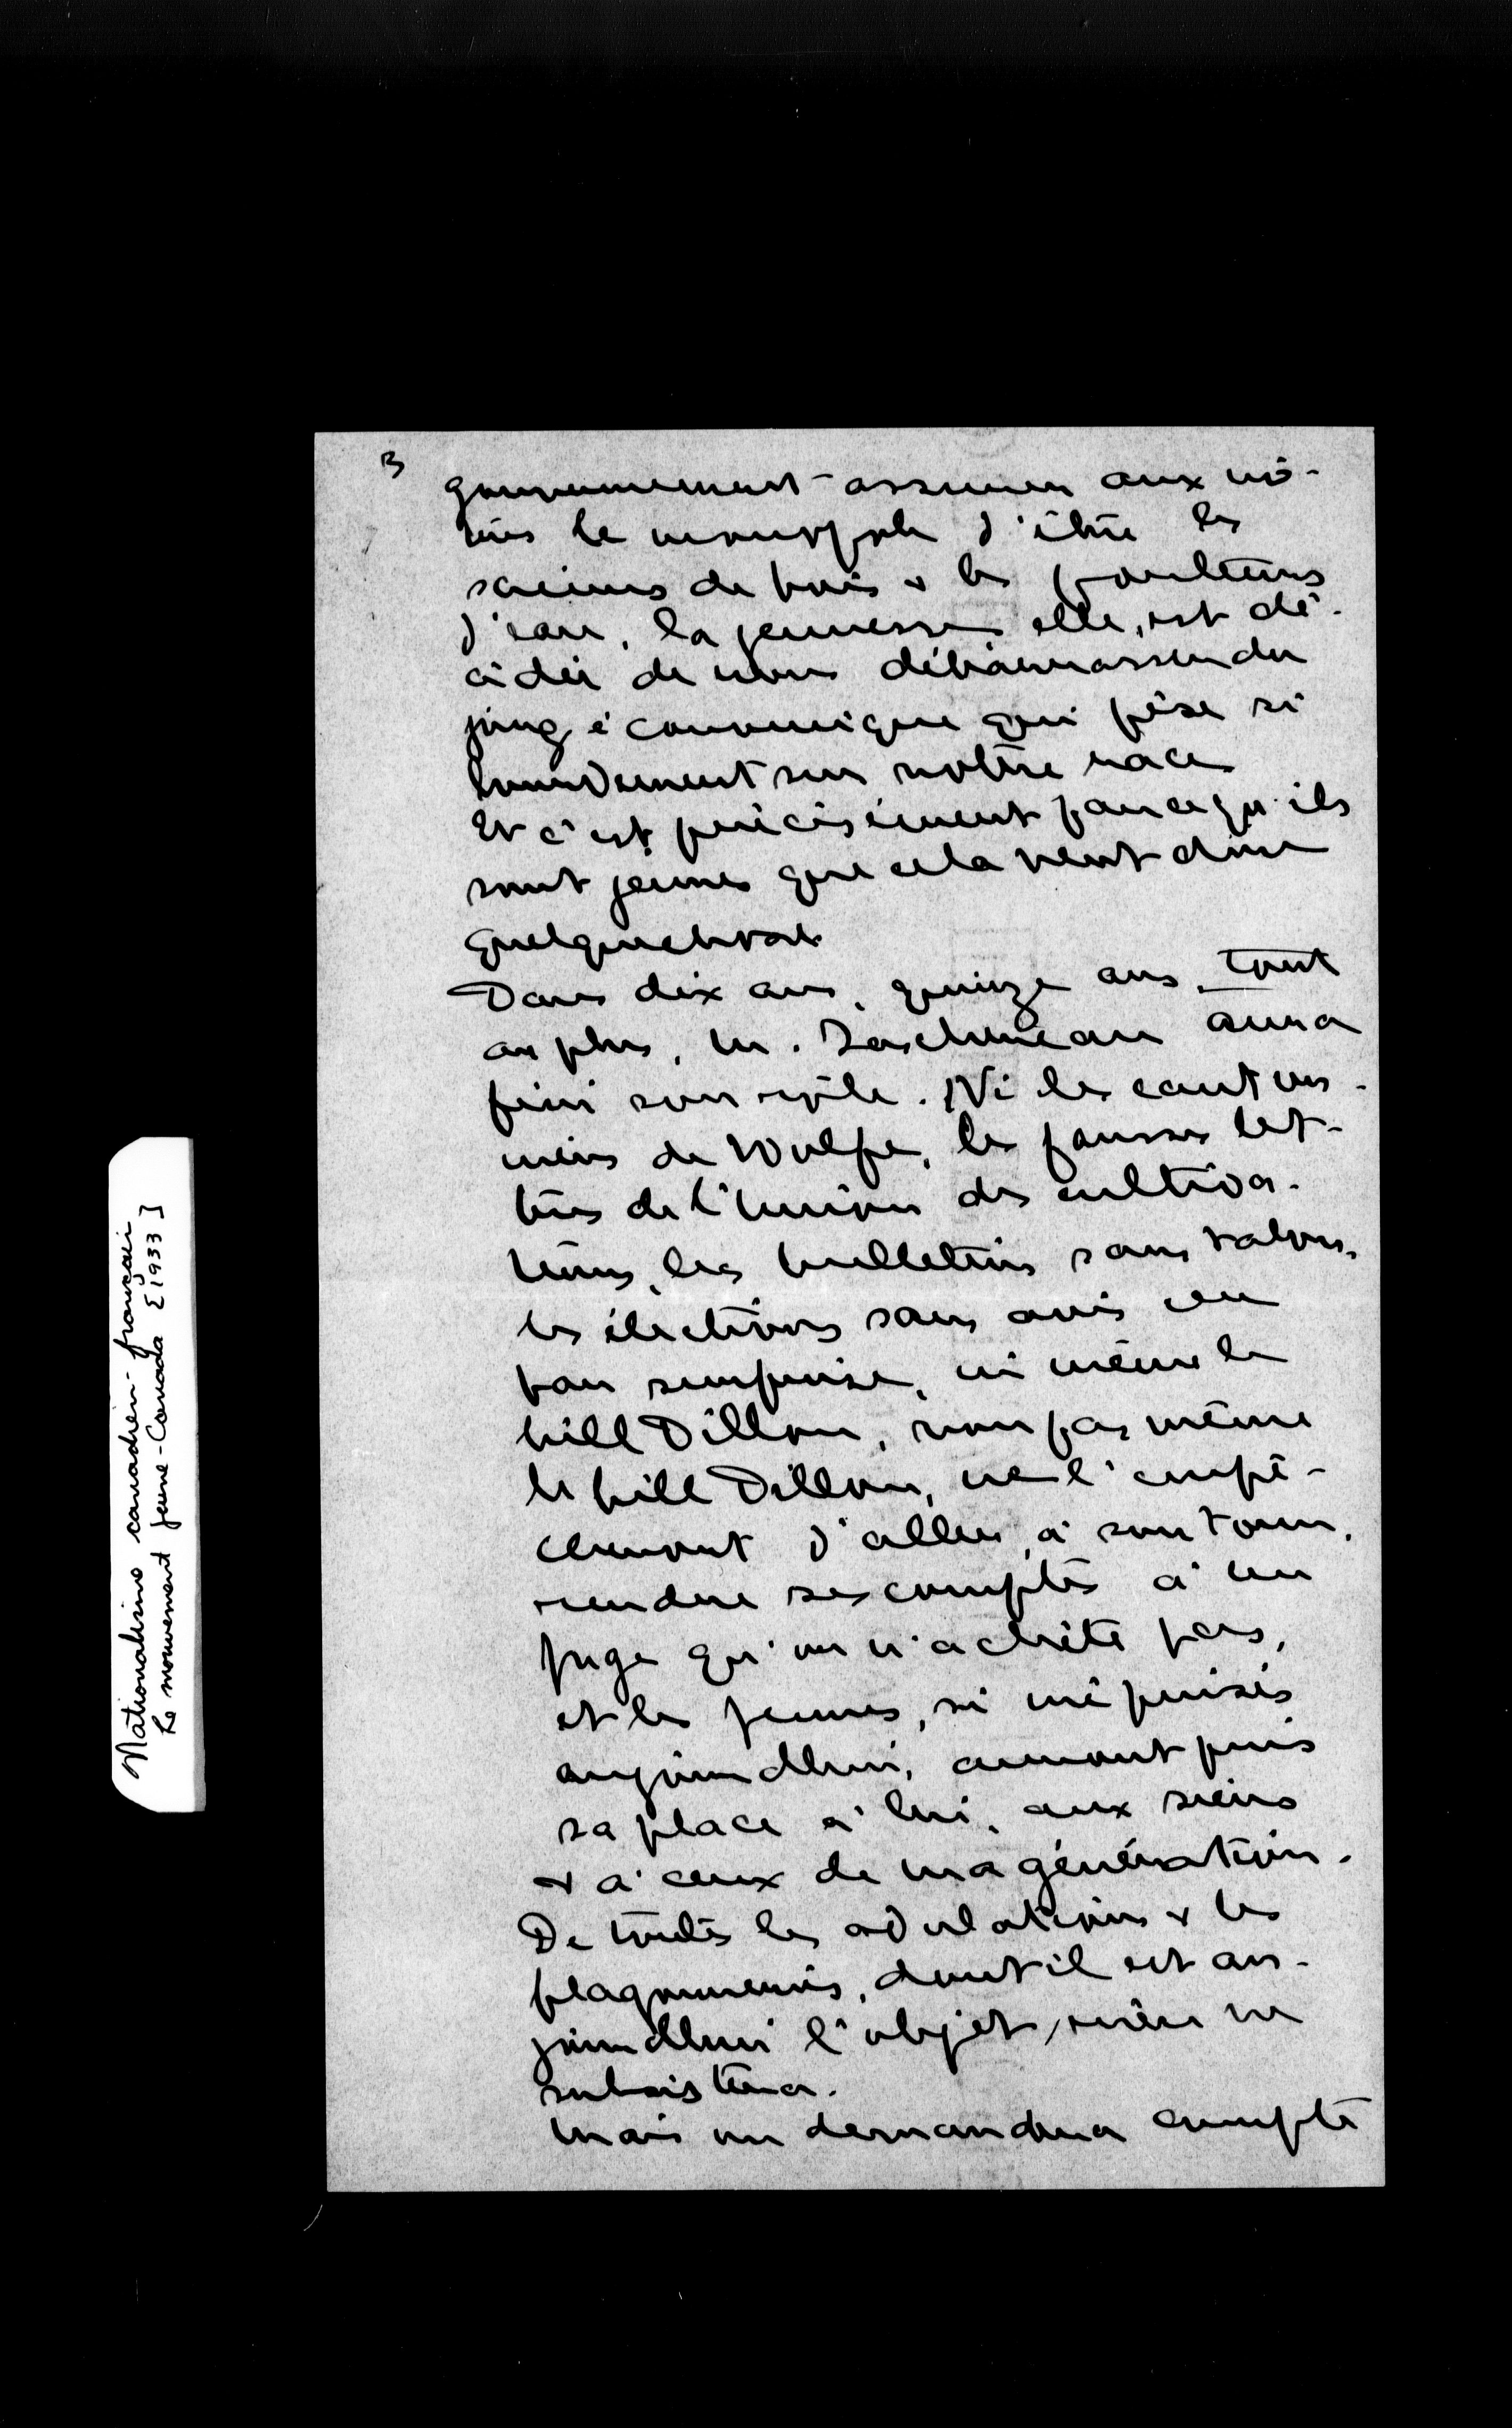 3
gouvernement assurer aux nô-
tres le monopole d'être les
scieurs de bois & les porteurs
d'eau, la jeunesse, elle, est dé-
cidée de nous débarrasser du
joug économique qui pèse si
lourdement sur notre race.
Et c'est précisément parce qu'ils
sont jeunes que cela veut dire
quelquechose.
Dans dix ans, quinze ans, tout
au plus, M. Taschereau aura
fini son rôle. Ni les
de Wolfe, les fausses let-
tres de l'Union des cultiva-
teurs, les bulletins sans talons,
les élections sans avis ou
par surprise, ni même le
bill Dillon, non pas même
le bill Dillon, ne l'empê-
cheront d'aller, à son tour,
rendre ses comptes à un
juge qu'on n'achète pas,
et les jeunes, si méprisés
aujourdhui, auront pris
sa place à lui, aux siens
& à ceux de ma génération.
De toutes les adulations & les
flagorneries, dont il est au-
jourdhui l'objet, rien ne
subsistera.
Mais on demandera compte
Nationalisme canadien-français
Le mouvement Jeune-Canada [1933]